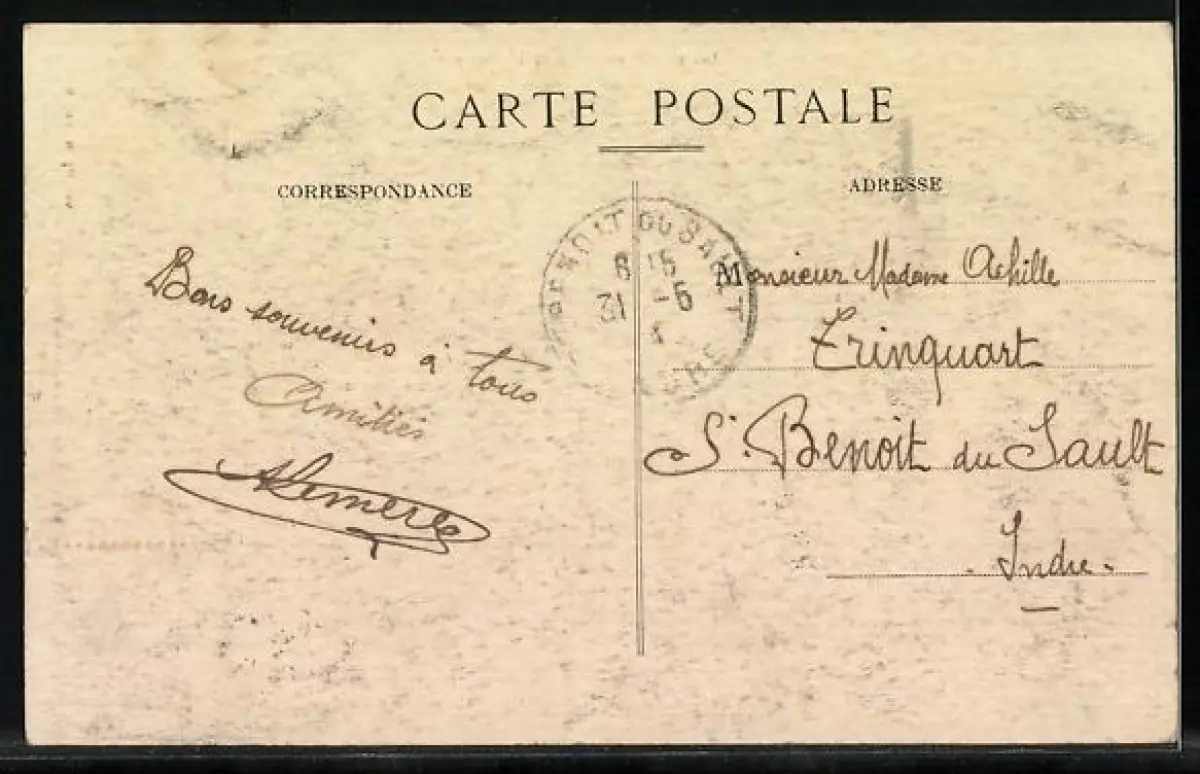 CARTE POSTALE
CORRESPONDANCE
ADRESSE
Bons souvenirs à tous
Amitiés
ST BENOIT DU SAULT
8 15
31 -5
Monsieur Madame Achille
Trinquart
St. Benoit du Sault
- Indre -